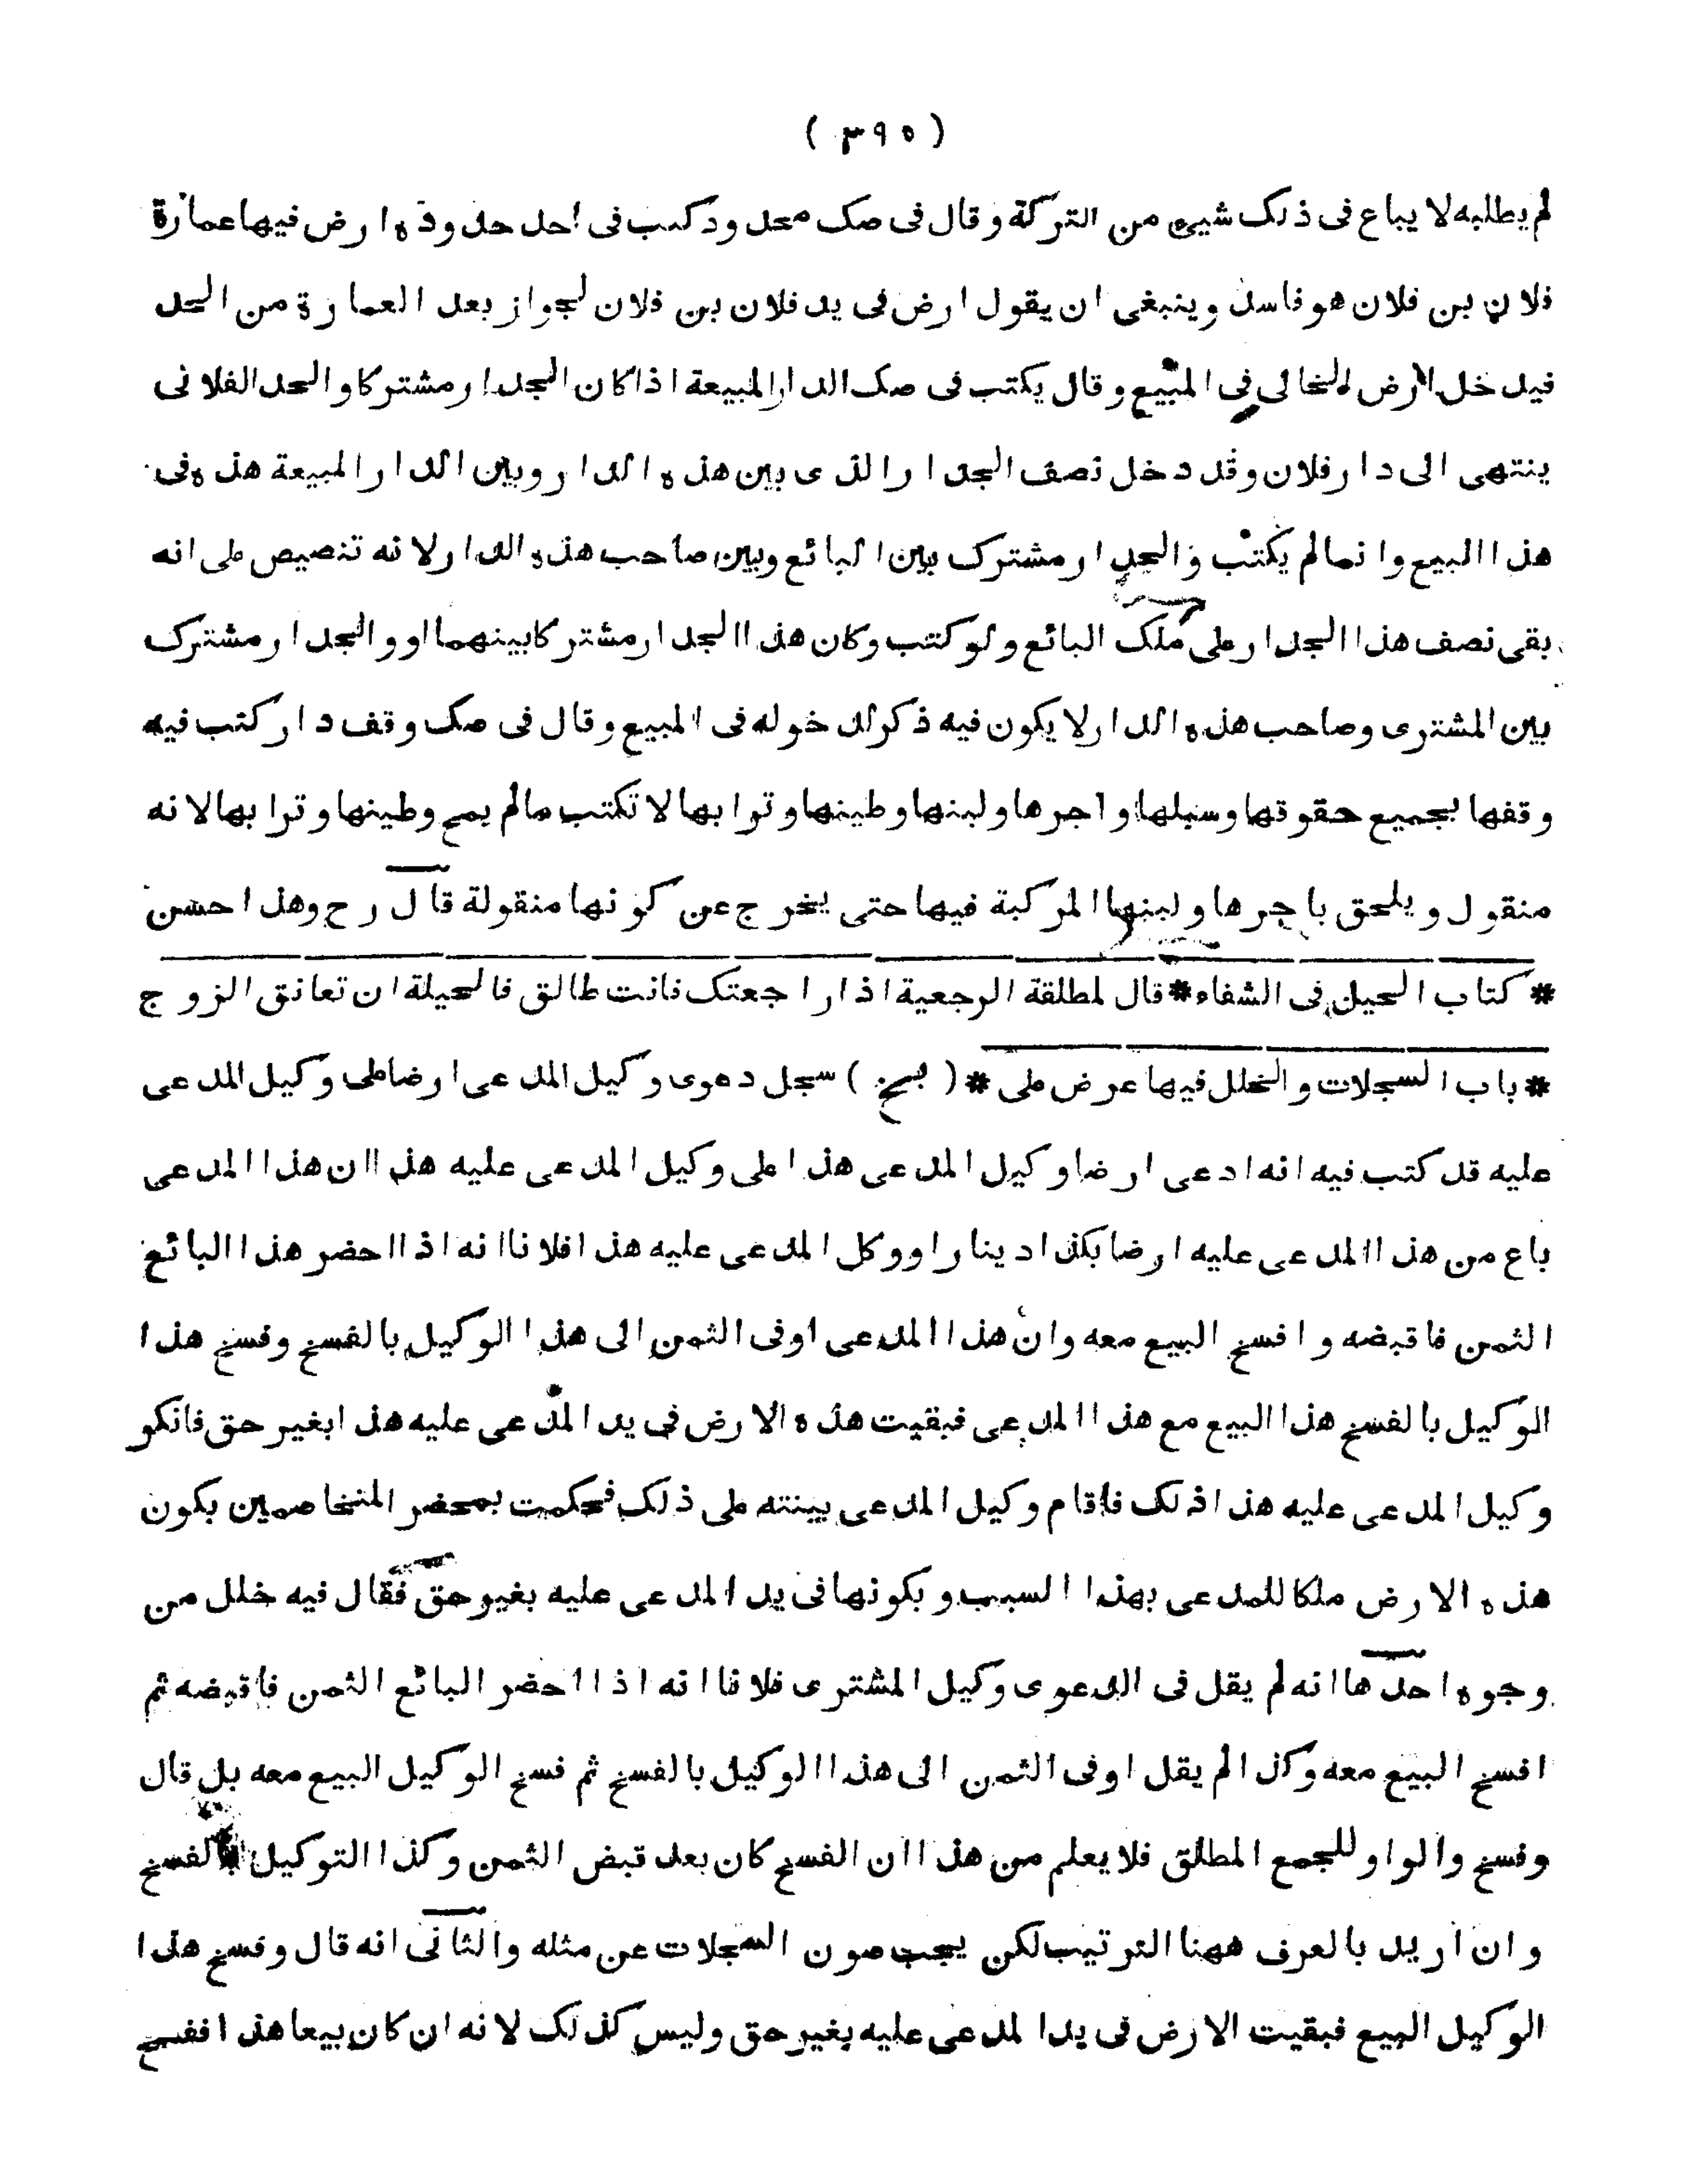 ( ٣٩٥ )
لم يطلبه لا يباع فى ذلك شيىء من التركة وقال فى صك محدود كتب فى احد حدوده ارض فيها عمارة
فلان بن فلان هو فاسد وينبغى ان يقول ارض فى يد فلان بن فلان لجواز بعد العمارة من الحد
فيدخل الارض الخالى فى المبيع وقال يكتب فى صك الدار المبيعة اذا كان الجدار مشتركا والحد الفلانى
ينتهى الى دار فلان وقد دخل نصف الجدار الذى بين هذه الدار وبين الدار المبيعة هذه فى
هذا البيع وانما لم يكتب والجدار مشترك بين البائع وبين صاحب هذه الدار لانه تنصيص على انه
بقى نصف هذا الجدار على ملك البائع ولو كتب وكان هذا الجدار مشتركا بينهما او والجدار مشترك
بين المشترى وصاحب هذه الدار لا يكون فيه ذكر الدخوله فى المبيع وقال فى صك وقف دار كتب فيه
وقفها بجميع حقوقها وسبلها وآجرها ولبنها وطينها وترابها لا تكتب مالم يمح وطينها وترابها لانه
منقول ويلحق باجرها ولبنها المركبة فيها حتى يخرج عن كونها منقولة قال رح وهذا حسن
* كتاب الحيل فى الشفاء * قال لمطلقة الرجعية اذا راجعتك فانت طالق فالحيلة ان تعانق الزوج
* باب السجلات والخلل فيها عرض على * ( بخ ) سجل دعوى وكيل المدعى ارضا على وكيل المدعى
عليه قد كتب فيه انه ادعى ارضا وكيل المدعى هذا على وكيل المدعى عليه هذا ان هذا المدعى
باع من هذا المدعى عليه ارضا بكذا دينارا ووكل المدعى عليه هذا فلانا انه اذا احضر هذا البائع
الثمن فاقبضه وافسخ البيع معه وان هذا المدعى اوفى الثمن الى هذا الوكيل بالفسخ وفسخ هذا
الوكيل بالفسخ هذا البيع مع هذا المدعى فبقيت هذه الارض فى يد المدعى عليه هذا بغير حق فانكر
وكيل المدعى عليه هذا ذلك فاقام وكيل المدعى بينته على ذلك فحكمت بمحضر المتخاصمين بكون
هذه الارض ملكا للمدعى بهذا السبب وبكونها فى يد المدعى عليه بغير حق فقال فيه خلل من
وجوه احدها انه لم يقل فى الدعوى وكيل المشترى فلانا انه اذا احضر البائع الثمن فاقبضه ثم
افسخ البيع معه وكذا لم يقل اوفى الثمن الى هذا الوكيل بالفسخ ثم فسخ الوكيل البيع معه بل قال
وفسخ والواو للجمع المطلق فلا يعلم من هذا ان الفسخ كان بعد قبض الثمن وكذا التوكيل بالفسخ
وان اريد بالعرف ههنا الترتيب لكن يجب صون السجلات عن مثله والثانى انه قال وفسخ هذا
الوكيل البيع فبقيت الارض فى يد المدعى عليه بغير حق وليس كذلك لانه ان كان بيعا هذا ففسخ